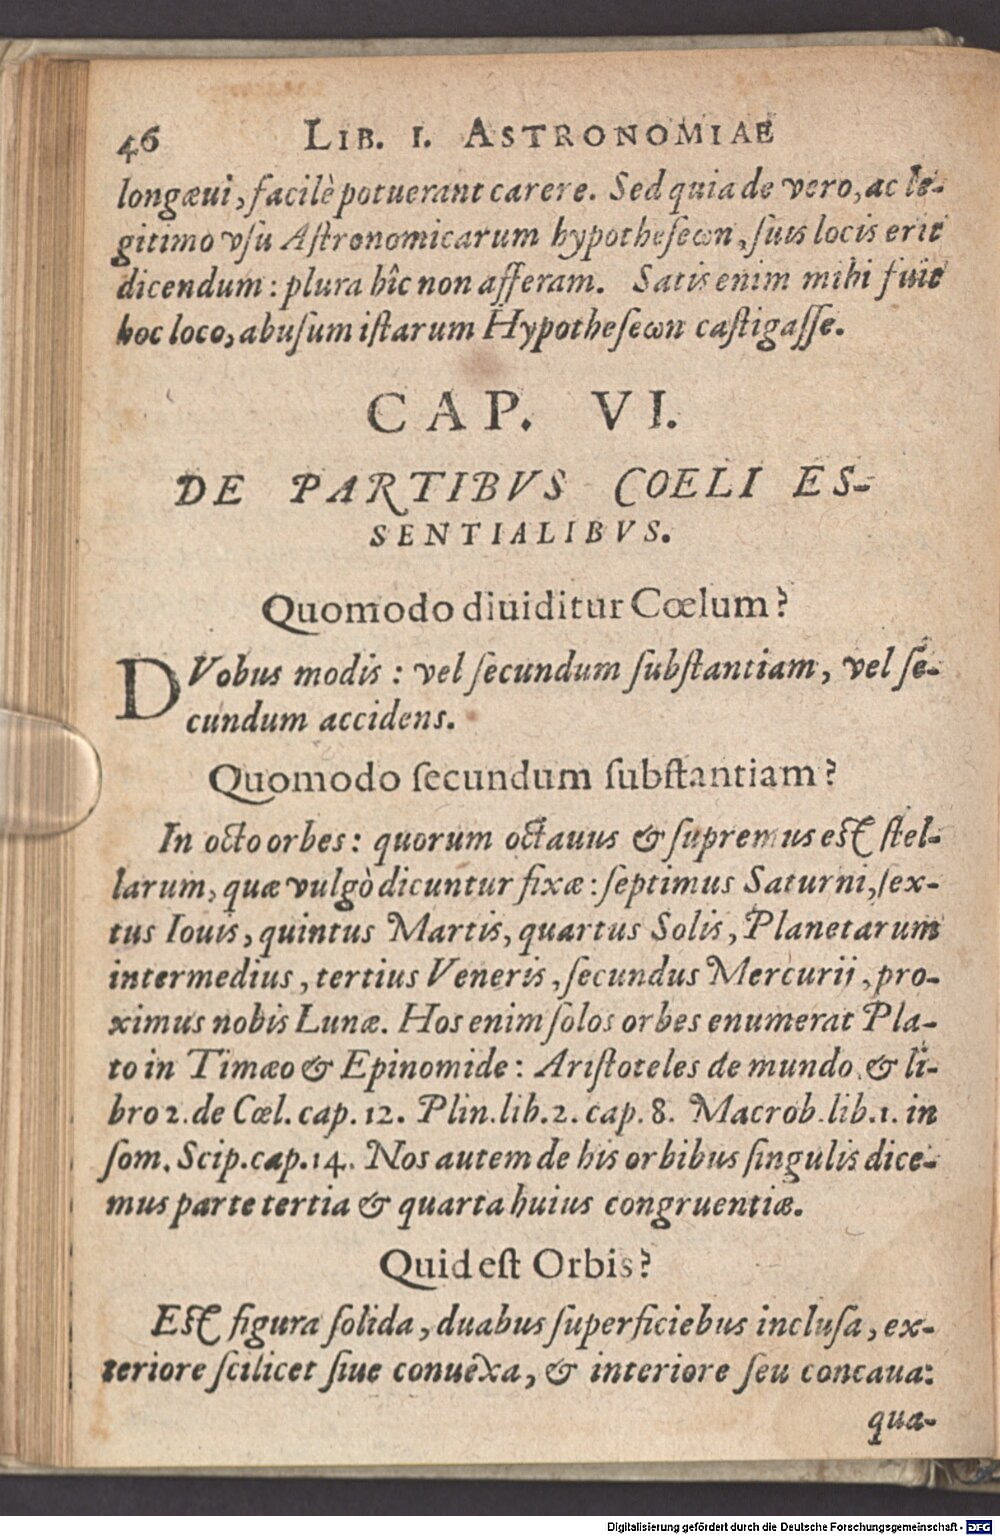 46 LIB. I. ASTRONOMIAE
longæui, facilè potuerant carere. Sed quia de vero, ac le-
gitimo vsu Astronomicarum hypotheseωn, suis locis erit
dicendum: plura hîc non afferam. Satis enim mihi fuit
hoc loco, abusum istarum Hypotheseωn castigasse.
CAP. VI.
DE PARTIBVS COELI ES-
SENTIALIBVS.
Quomodo diuiditur Cœlum?
DVobus modis: vel secundum substantiam, vel se-
cundum accidens.
Quomodo secundum substantiam?
In octo orbes: quorum octauus & supremus est stel-
larum, quæ vulgò dicuntur fixæ: septimus Saturni, sex-
tus Iouis, quintus Martis, quartus Solis, Planetarum
intermedius, tertius Veneris, secundus Mercurij, pro-
ximus nobis Lunæ. Hos enim solos orbes enumerat Pla-
to in Timæo & Epinomide: Aristoteles de mundo, & li-
bro 2. de Cœl. cap. 12. Plin. lib. 2. cap. 8. Macrob. lib. 1. in
som. Scip. cap. 14. Nos autem de his orbibus singulis dice-
mus parte tertia & quarta huius congruentiæ.
Quid est Orbis?
Est figura solida, duabus superficiebus inclusa, ex-
teriore scilicet siue conuexa, & interiore seu concaua:
qua-
Digitalisierung gefördert durch die Deutsche Forschungsgemeinschaft - DFG